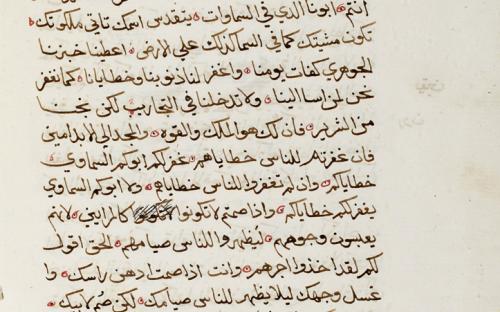 انتم ابونا الدي في السماوات يتقدس اسمك تاتي ملكوتك
تكون مشيتك كما في السما كذلك علي الارض اعطينا خبزنا
الجوهري كفات يومنا واغفر لنا ذنوبنا وخطايانا كما نغفر
نحن لمن اسا الينا ولا تدخلنا في التجاريب لكن نجنا
من الشرير فان لك هو الملك والقوه والمجد الي الابد امين
فان غفرتم للناس خطاياهم غفر لكم ابوكم السماوي
خطاياكم وان لم تغفروا للناس خطاياهم ولا ابوكم السماوي
يغفر لكم خطاياكم واذا صمتم لا تكونوا كالمرايين لانهم
يعبسون وجوههم ليظهروا للناس صيامهم الحق اقول
لكم لقد اخذوا اجرهم وانت اذا صمت ادهن راسك وا
غسل وجهك ليلا يظهر للناس صيامك لكن صم لابيك